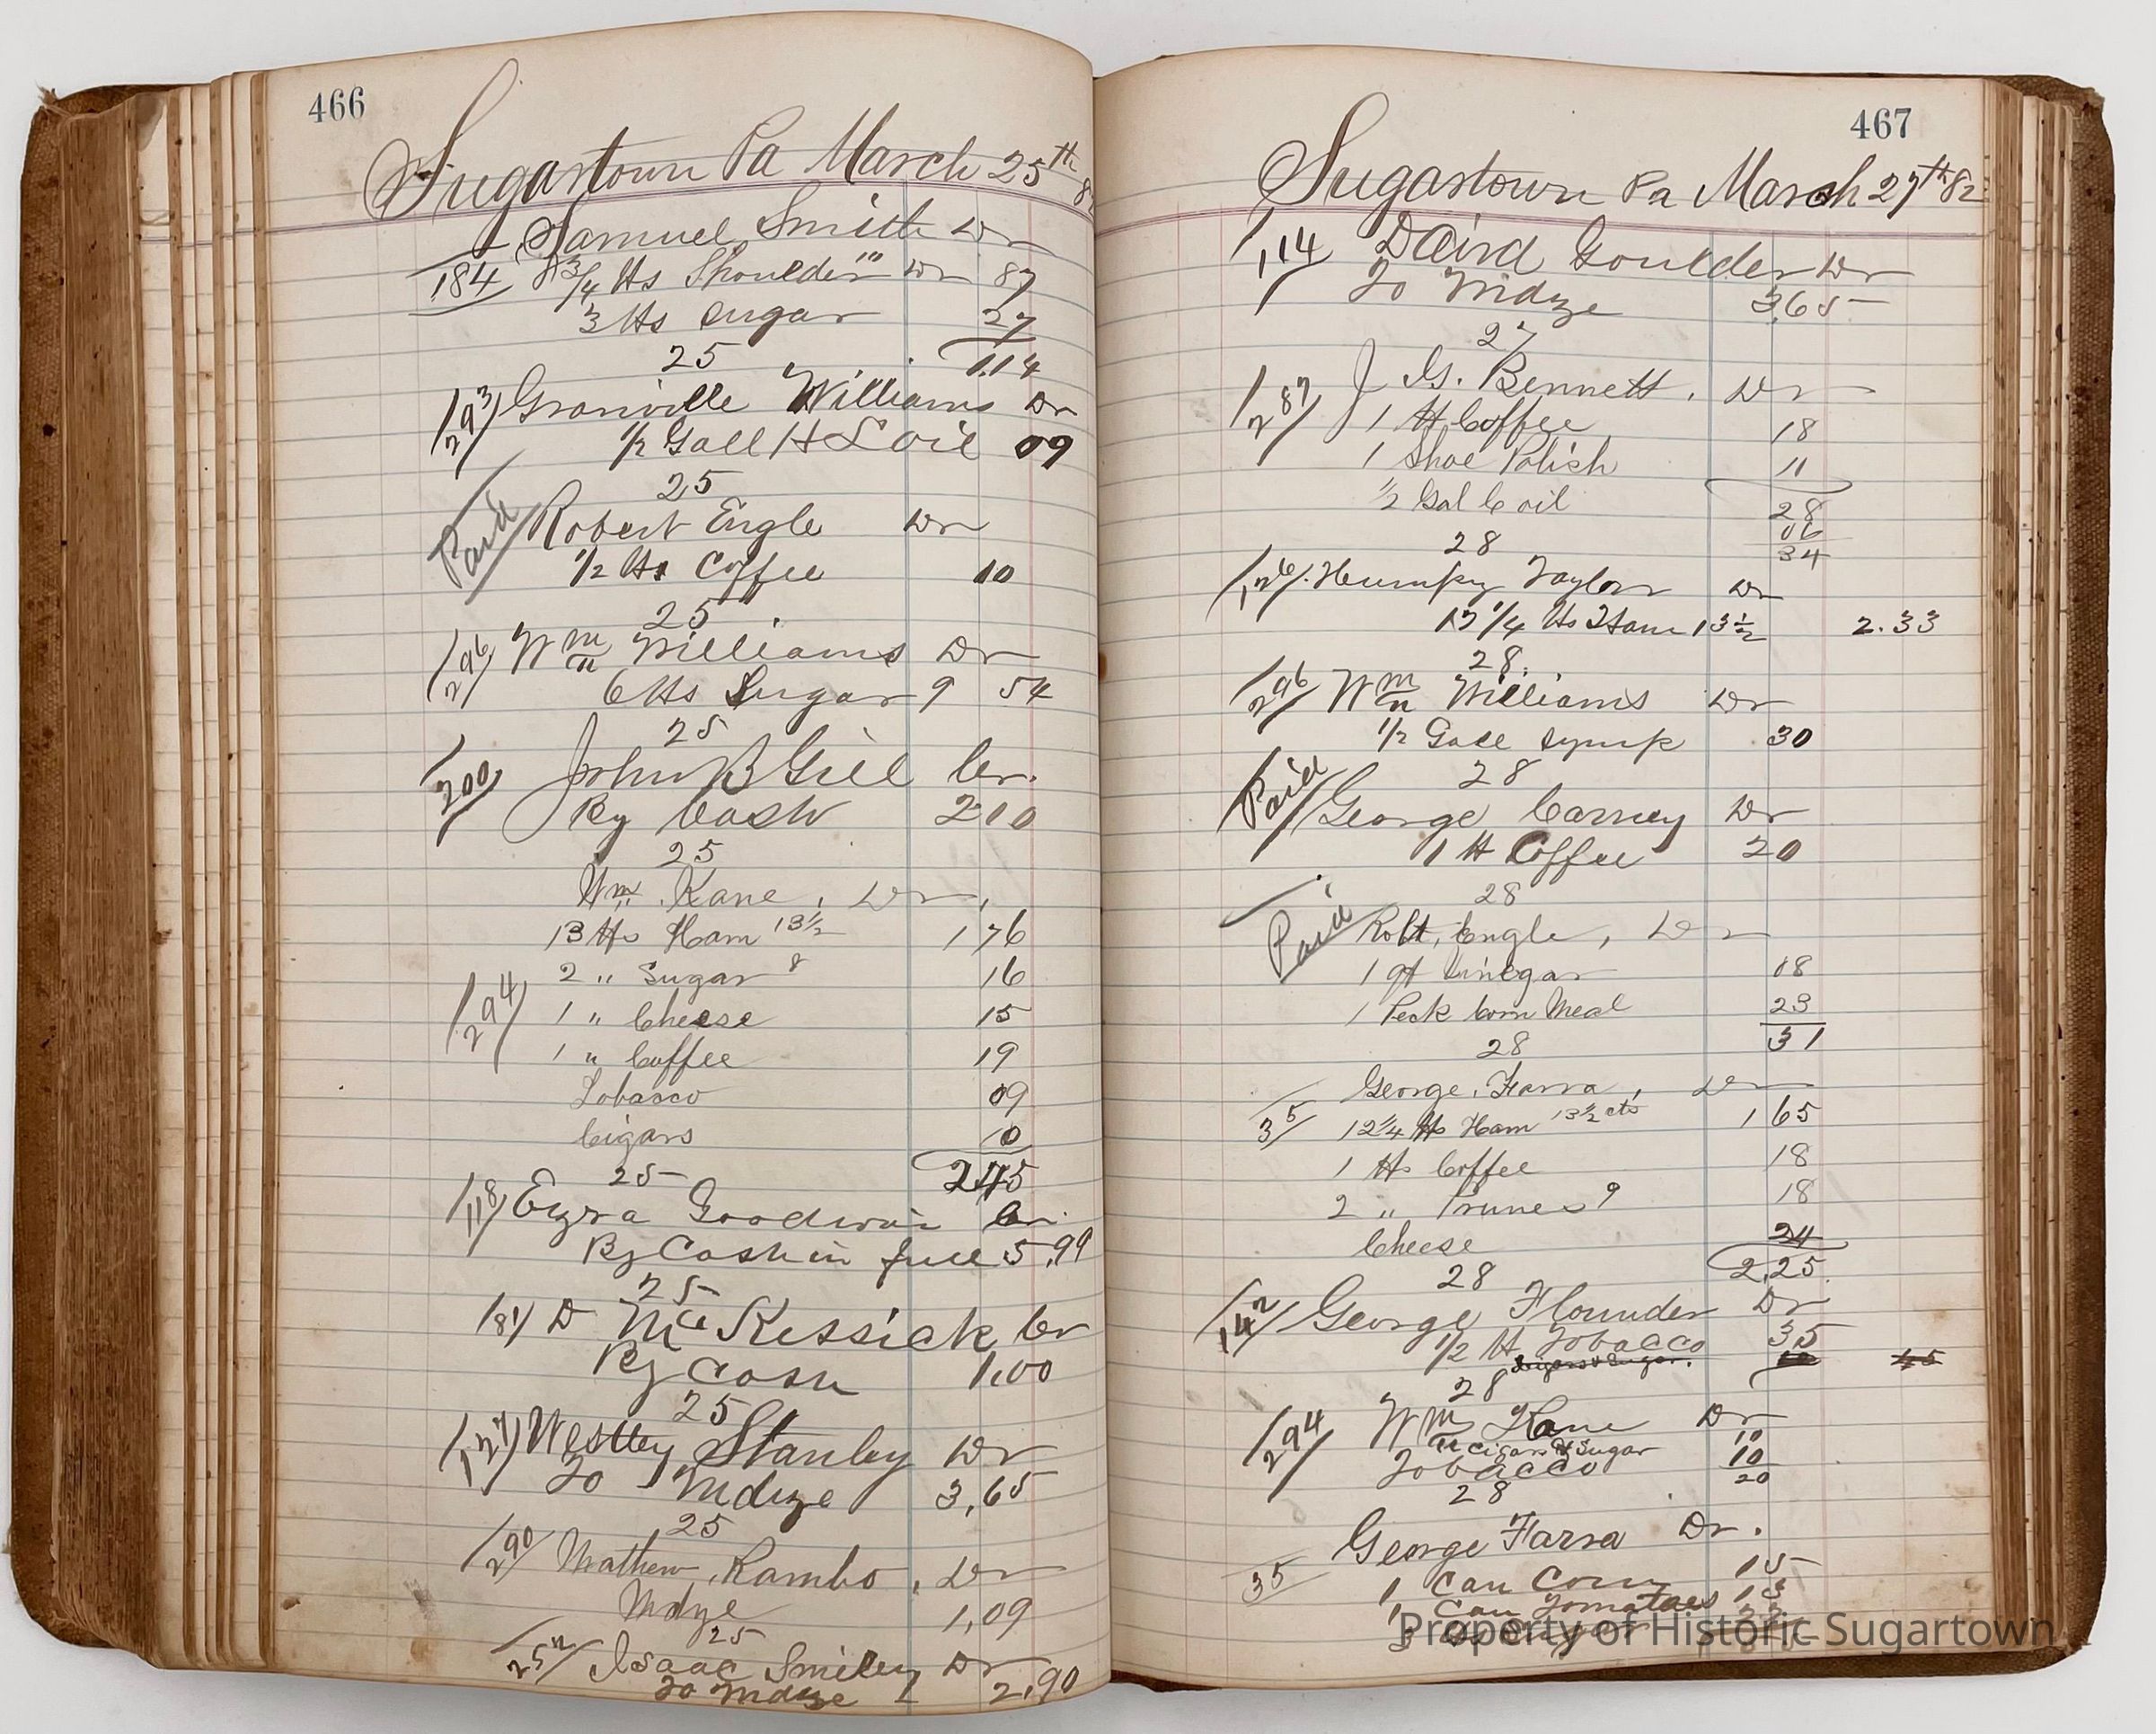 466
Sugartown Pa March 25th 82
Samuel Smith Dr
184 8 3/4 lbs Shoulder Dr 87
3 lbs Sugar 27
25 1.14
293 Granville Williams Dr
1/2 Gall H L Oil 09
25
Paid Robert Engle Dr
1/2 lbs Coffee 10
25
296 Wm Williams Dr
6 lbs Sugar 9 54
25
200 John B Gill Cr.
By Cash 210
25
Wm Kane, Dr,
13 lbs Ham 13 1/2 1 76
2 " Sugar 8 16
294 1 " Cheese 15
1 " Coffee 19
Tobacco 09
Cigars 10
25 2.45
118 Ezra Goodwin Cr.
By Cash in full 5.99
25
81 D McKissick Cr
By Cash 1.00
25
127 Westley Stanley Dr
To Mdze 3,65
25
290 Mathew Rambo, Dr
Mdze 1,09
25
252 Isaac Smiley Dr
To Mdze 2,90
467
Sugartown Pa March 27th 82
114 David Goulder Dr
To Mdze 3.65
27
287 J. G. Bennett, Dr
1 lb Coffee 18
1 Shoe Polish 11
1/2 Gal C oil 28
06
28 34
126 Humphy Taylor Dr
17 1/4 lbs Ham 13 1/2 2.33
28
296 Wm Williams Dr
1/2 Gall Syrup 30
28
Paid George Carney Dr
1 lb Coffee 20
28
Paid Robt. Engle, Dr
1 qt Vinegar 08
1 Peck Corn Meal 23
28 31
George Farra, Dr
35 12 1/4 lb Ham 13 1/2 cts 1 65
1 lb Coffee 18
2 " Prunes 9 18
Cheese 24
28 2,25
142 George Flounder Dr
1/2 lb Tobacco 35
Cigars & Sugar. 10 45
28
294 Wm Kane Dr
Cigars & Sugar 10
Tobacco 10
28 20
George Farra Dr.
35 1 Can Corn 15
1 Can Tomatoes 13
3 lbs Sugar
Property of Historic Sugartown